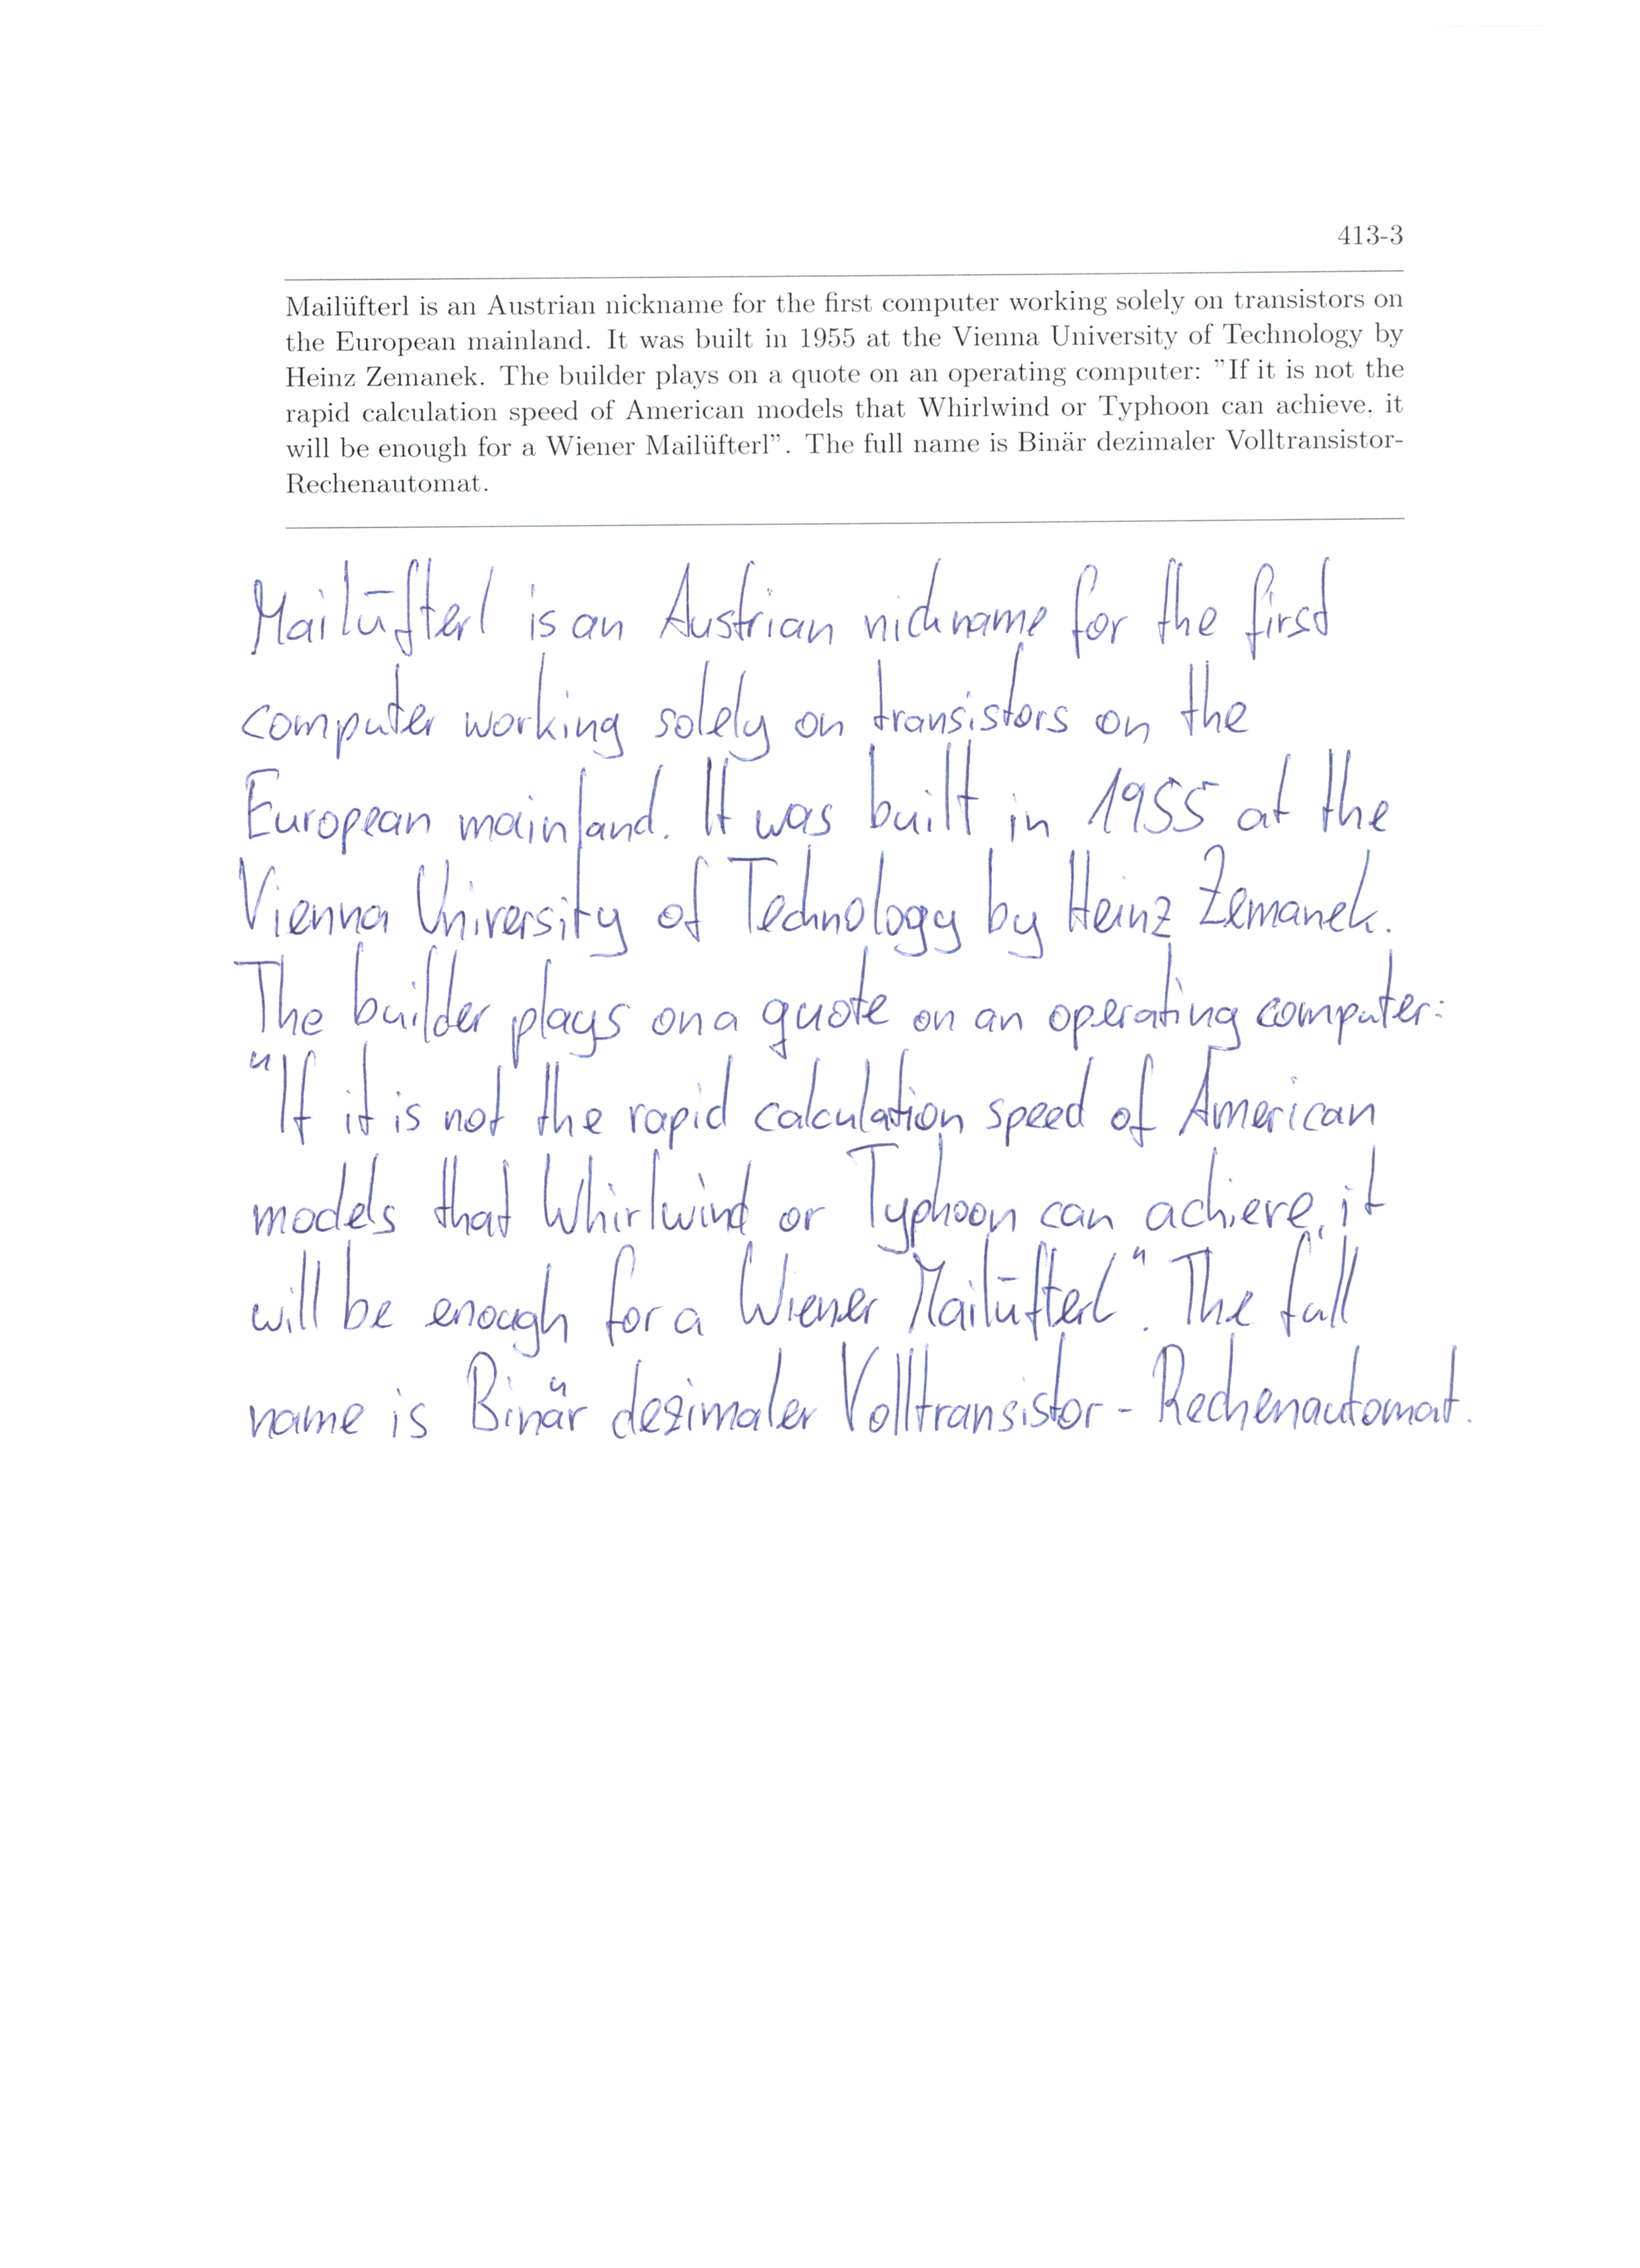 413-3
Mailüfterl is an Austrian nickname for the first computer working solely on transistors on
the European mainland. It was built in 1955 at the Vienna University of Technology by
Heinz Zemanek. The builder plays on a quote on an operating computer: "If it is not the
rapid calculation speed of American models that Whirlwind or Typhoon can achieve, it
will be enough for a Wiener Mailüfterl". The full name is Binär dezimaler Volltransistor-
Rechenautomat.
Mailüfterl is an Austrian nickname for the first
computer working solely on transistors on the
European mainland. It was built in 1955 at the
Vienna University of Technology by Heinz Zemanek.
The builder plays on a quote on an operating computer:
"If it is not the rapid calculation speed of American
models that Whirlwind or Typhoon can achieve, it
will be enough for a Wiener Mailüfterl". The full
name is Binär dezimaler Volltransistor-Rechenautomat.